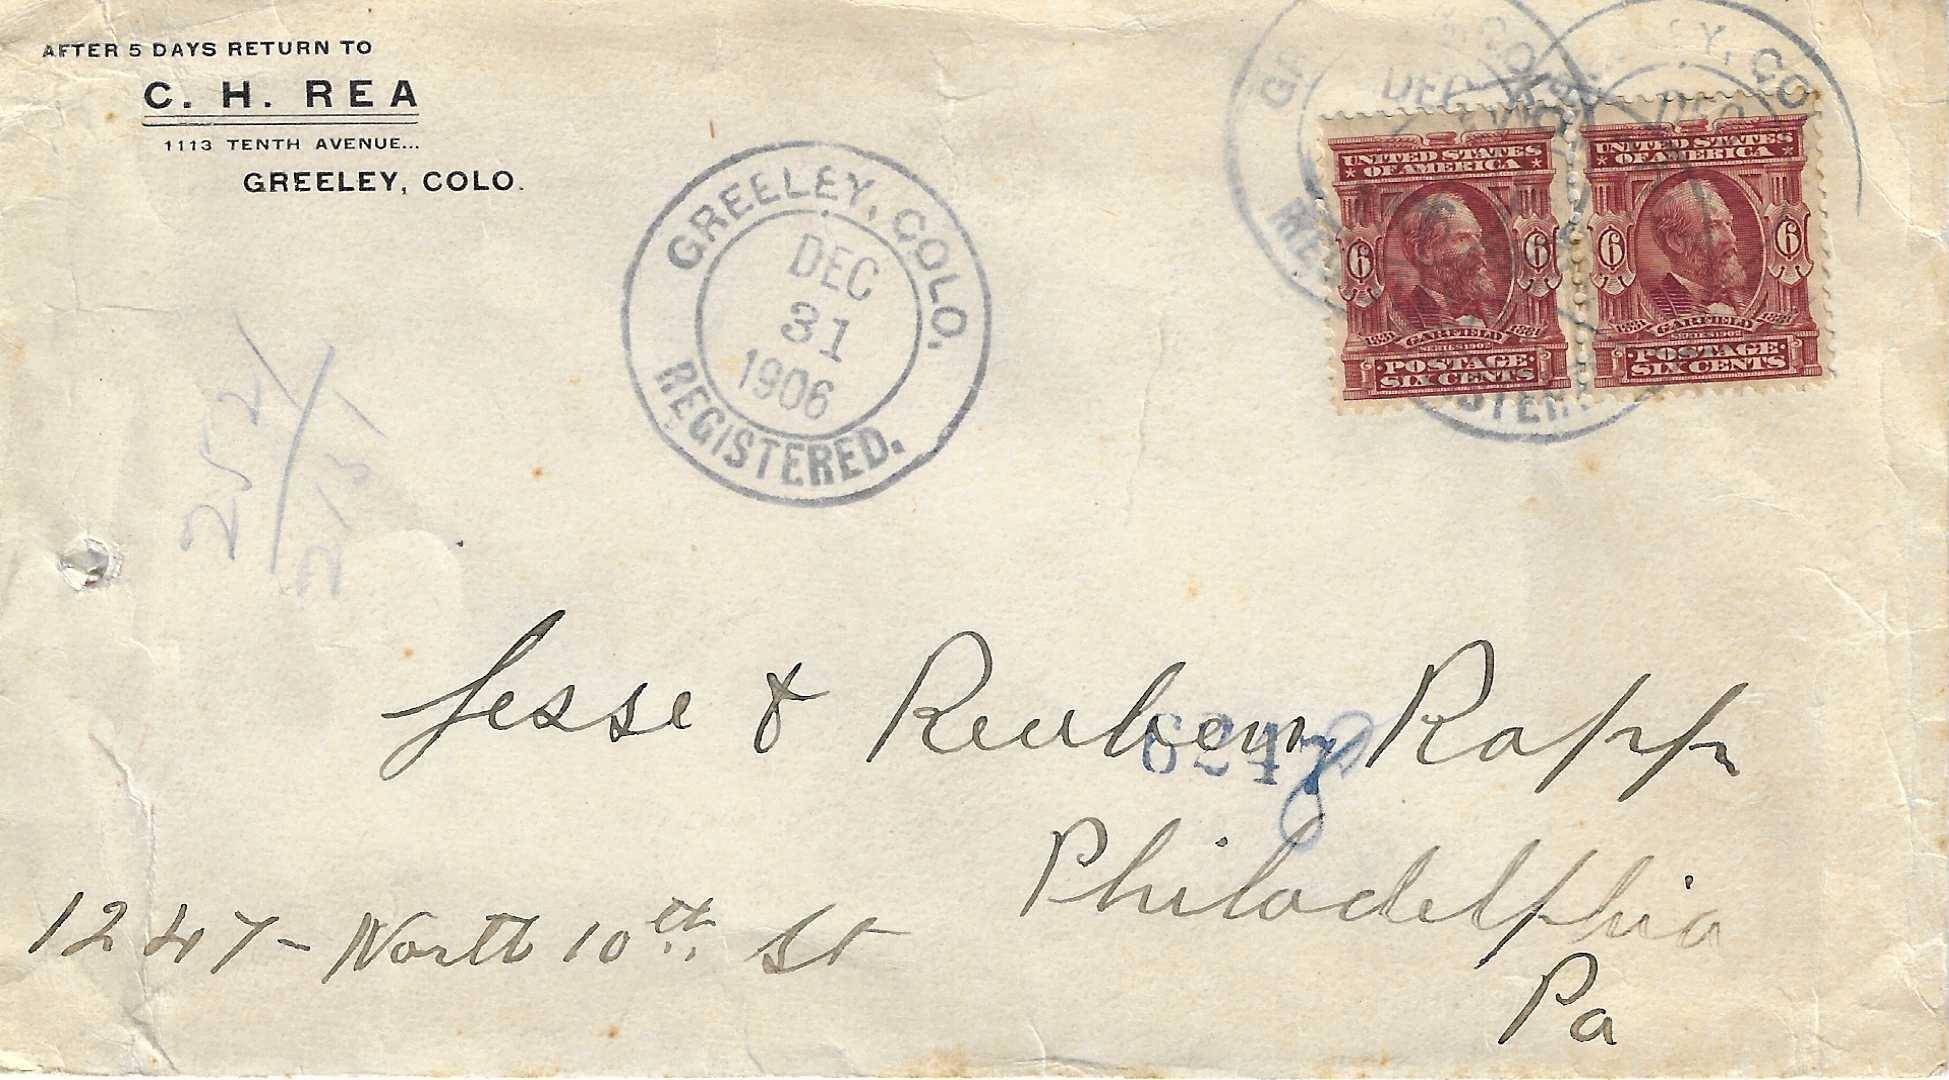 AFTER 5 DAYS RETURN TO
C. H. REA
1113 TENTH AVENUE...
GREELEY, COLO.
GREELEY, COLO.
DEC
31
1906
REGISTERED.
UNITED STATES
OF AMERICA
6 6
1831 GARFIELD 1881
SERIES 1902
POSTAGE
SIX CENTS
UNITED STATES
OF AMERICA
6 6
1831 GARFIELD 1881
SERIES 1902
POSTAGE
SIX CENTS
Jesse & Reuben Rapp
Philadelphia
Pa
1247 - North 10th St